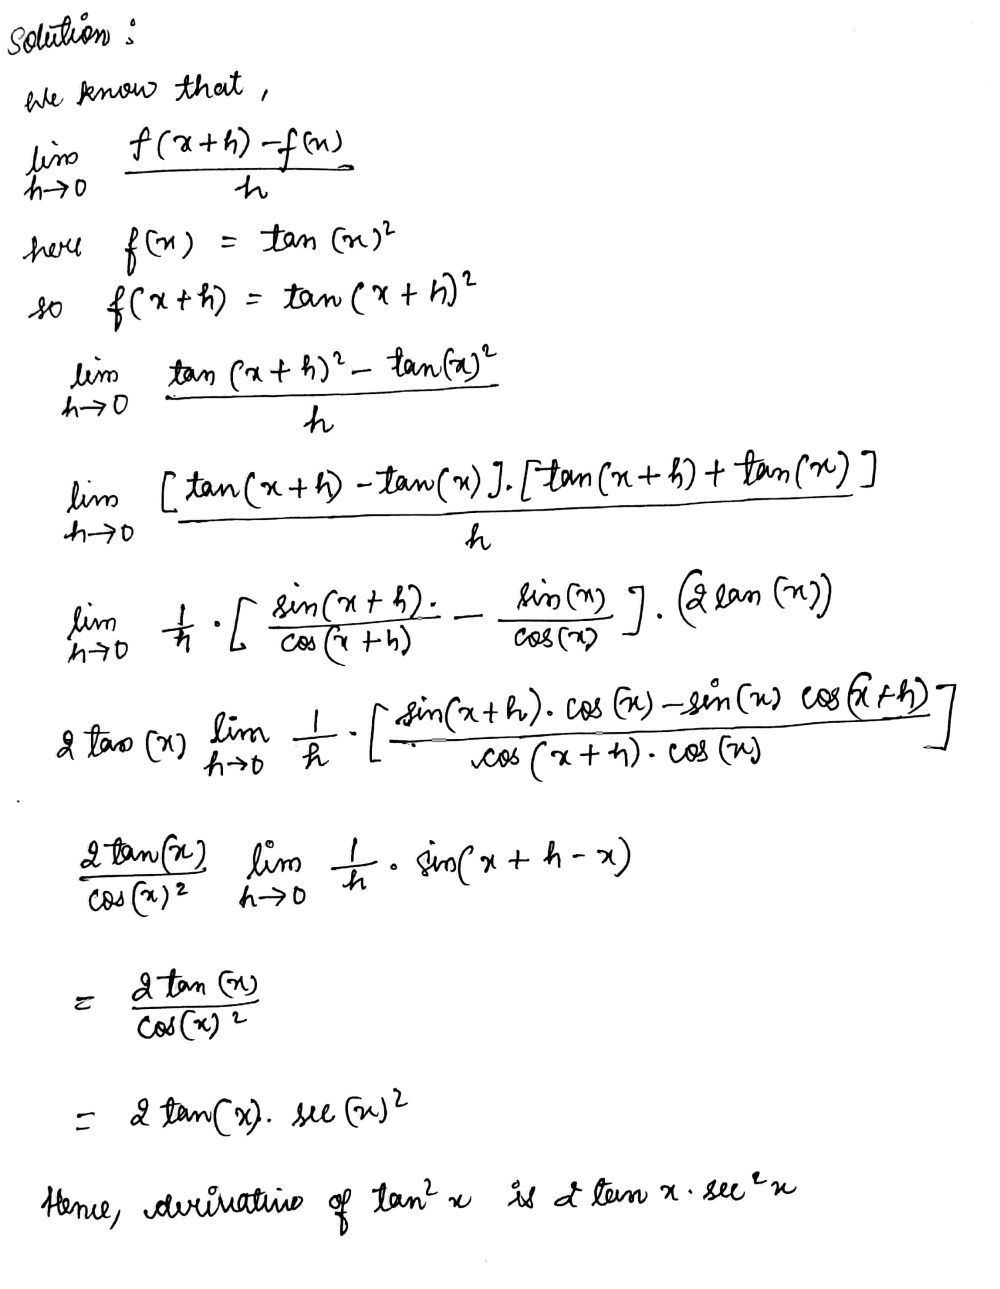 Solution :
We know that ,
lim h→0 f(x+h) - f(x) / h
here f(x) = tan (x)²
so f(x+h) = tan (x+h)²
lim h→0 tan (x+h)² - tan(x)² / h
lim h→0 [tan(x+h) - tan(x)].[tan(x+h) + tan(x)] / h
lim h→0 1/h . [ sin(x+h). / cos(x+h) - sin(x) / cos(x) ]. (2 tan (x))
2 tan (x) lim h→0 1/h . [ sin(x+h). cos (x) - sin(x) cos(x+h) / cos (x+h). cos (x) ]
2 tan(x) / cos(x)² lim h→0 1/h . sin(x+h-x)
= 2 tan (x) / cos(x)²
= 2 tan(x). sec (x)²
Hence, derivative of tan² x is 2 tan x. sec² x